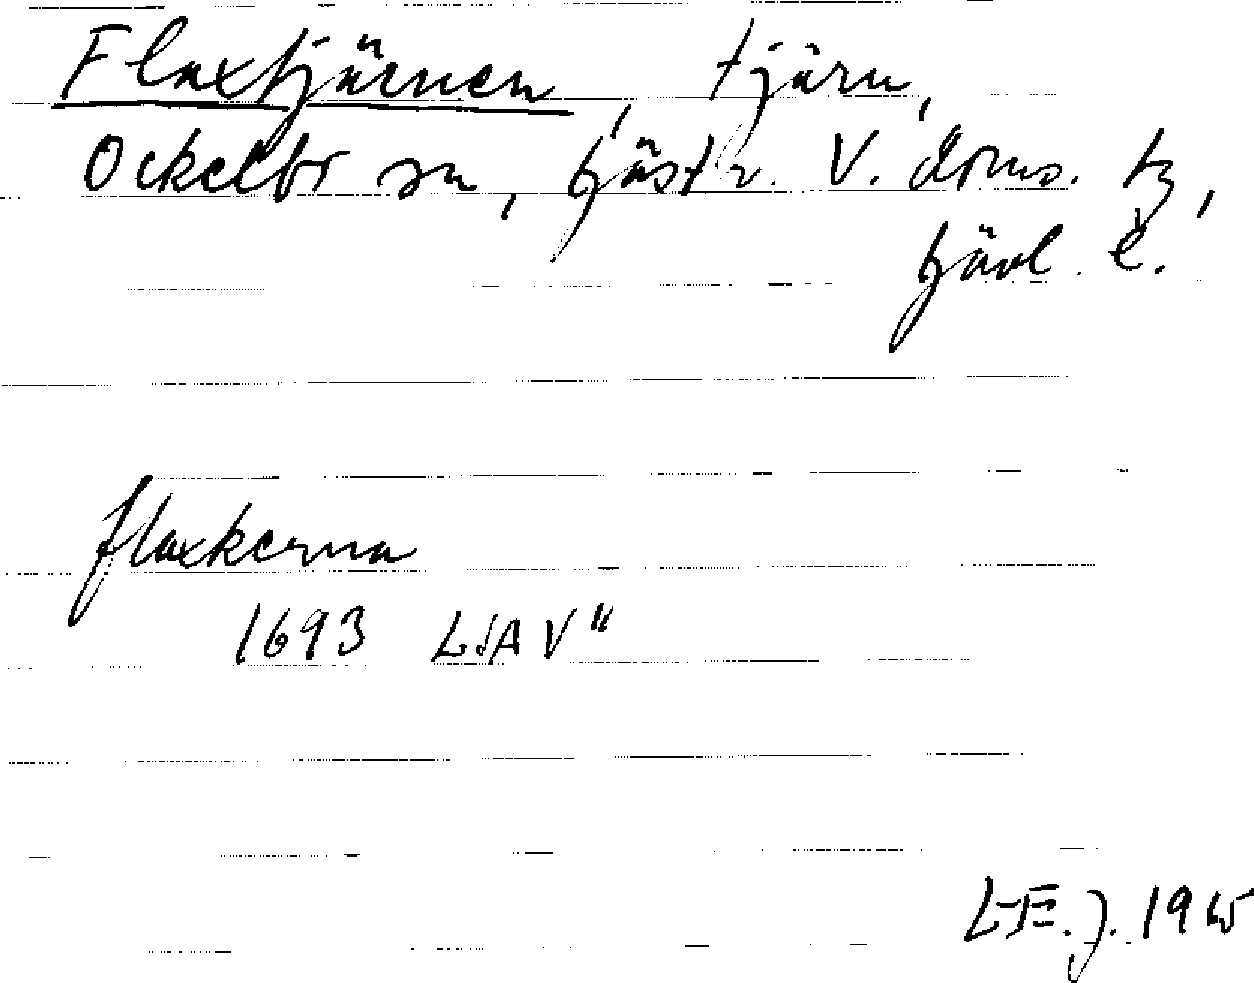 Flaxtjärnen, tjärn,
Ockelbo sn, Gästr. V. doms. tg,
Gävl. l.
flaxkerna
1693 LSA V"
L-E. J. 19